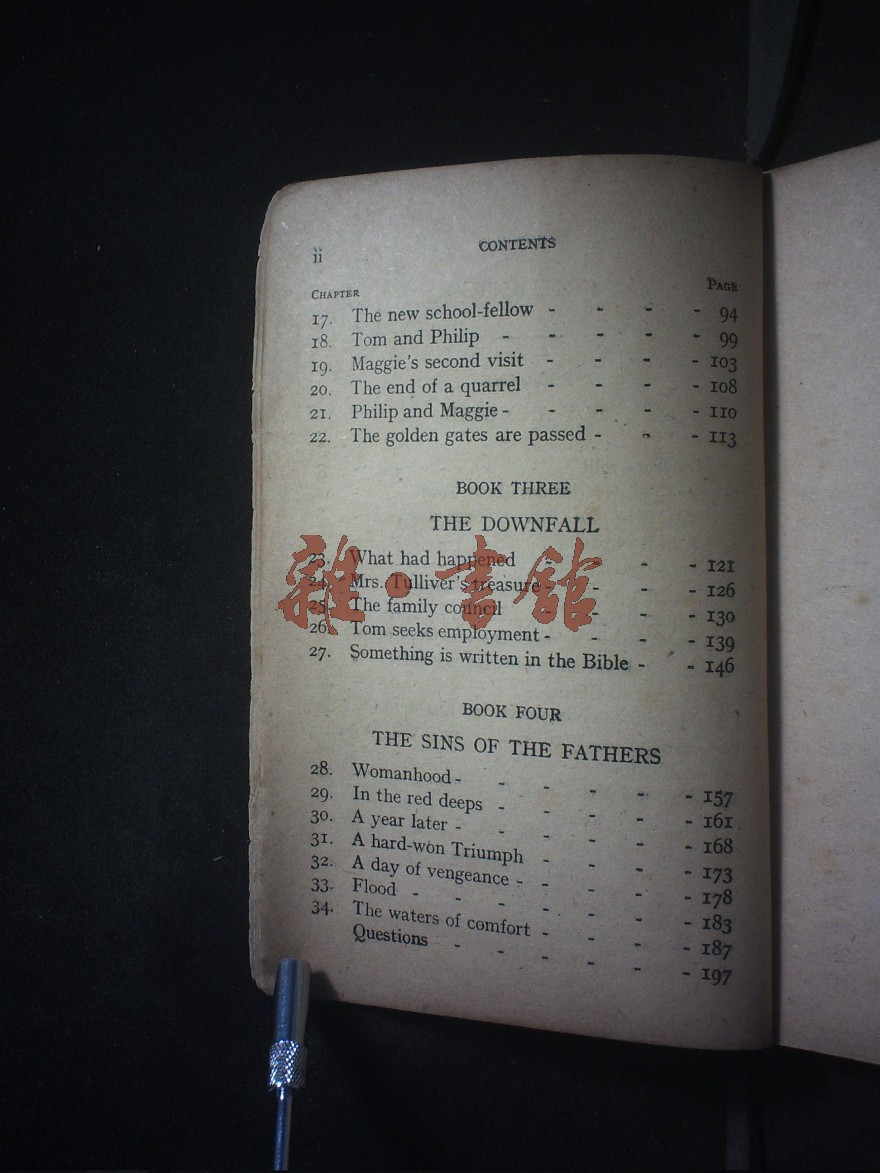 ii CONTENTS
CHAPTER PAGE
17. The new school-fellow - - - - 94
18. Tom and Philip - - - - - 99
19. Maggie's second visit - - - - 103
20. The end of a quarrel - - - - 108
21. Philip and Maggie - - - - - 110
22. The golden gates are passed - - - 113
BOOK THREE
THE DOWNFALL
23. What had happened - - - - 121
24. Mrs. Tulliver's treasure - - - - 126
25. The family council - - - - 130
26. Tom seeks employment - - - - 139
27. Something is written in the Bible - - 146
BOOK FOUR
THE SINS OF THE FATHERS
28. Womanhood - - - - - - 157
29. In the red deeps - - - - - 161
30. A year later - - - - - - 168
31. A hard-won Triumph - - - - 173
32. A day of vengeance - - - - - 178
33. Flood - - - - - - 183
34. The waters of comfort - - - - 187
Questions - - - - - 197
雜·書館